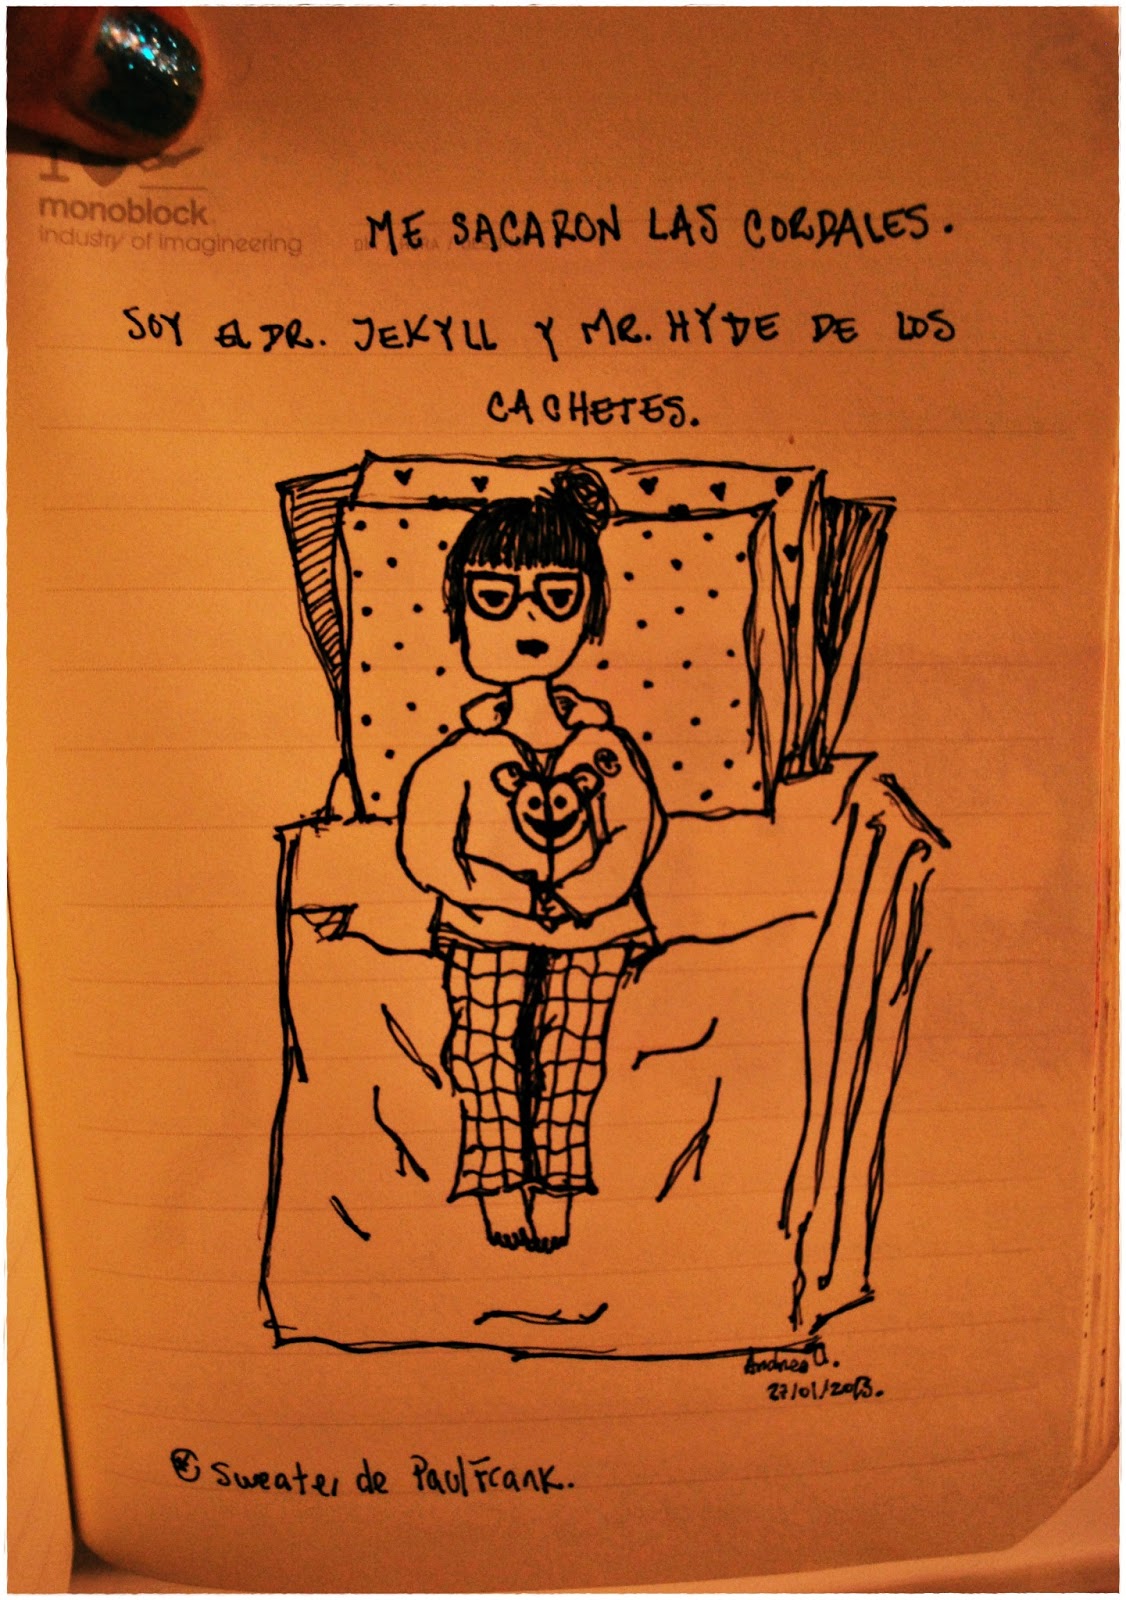 monoblock
industry of imagineering
ME SACARON LAS CORDALES.
SOY EL DR. JEKYLL Y MR. HYDE DE LOS
CACHETES.
Andrea O.
27/01/2013.
Sweater de Paul Frank.